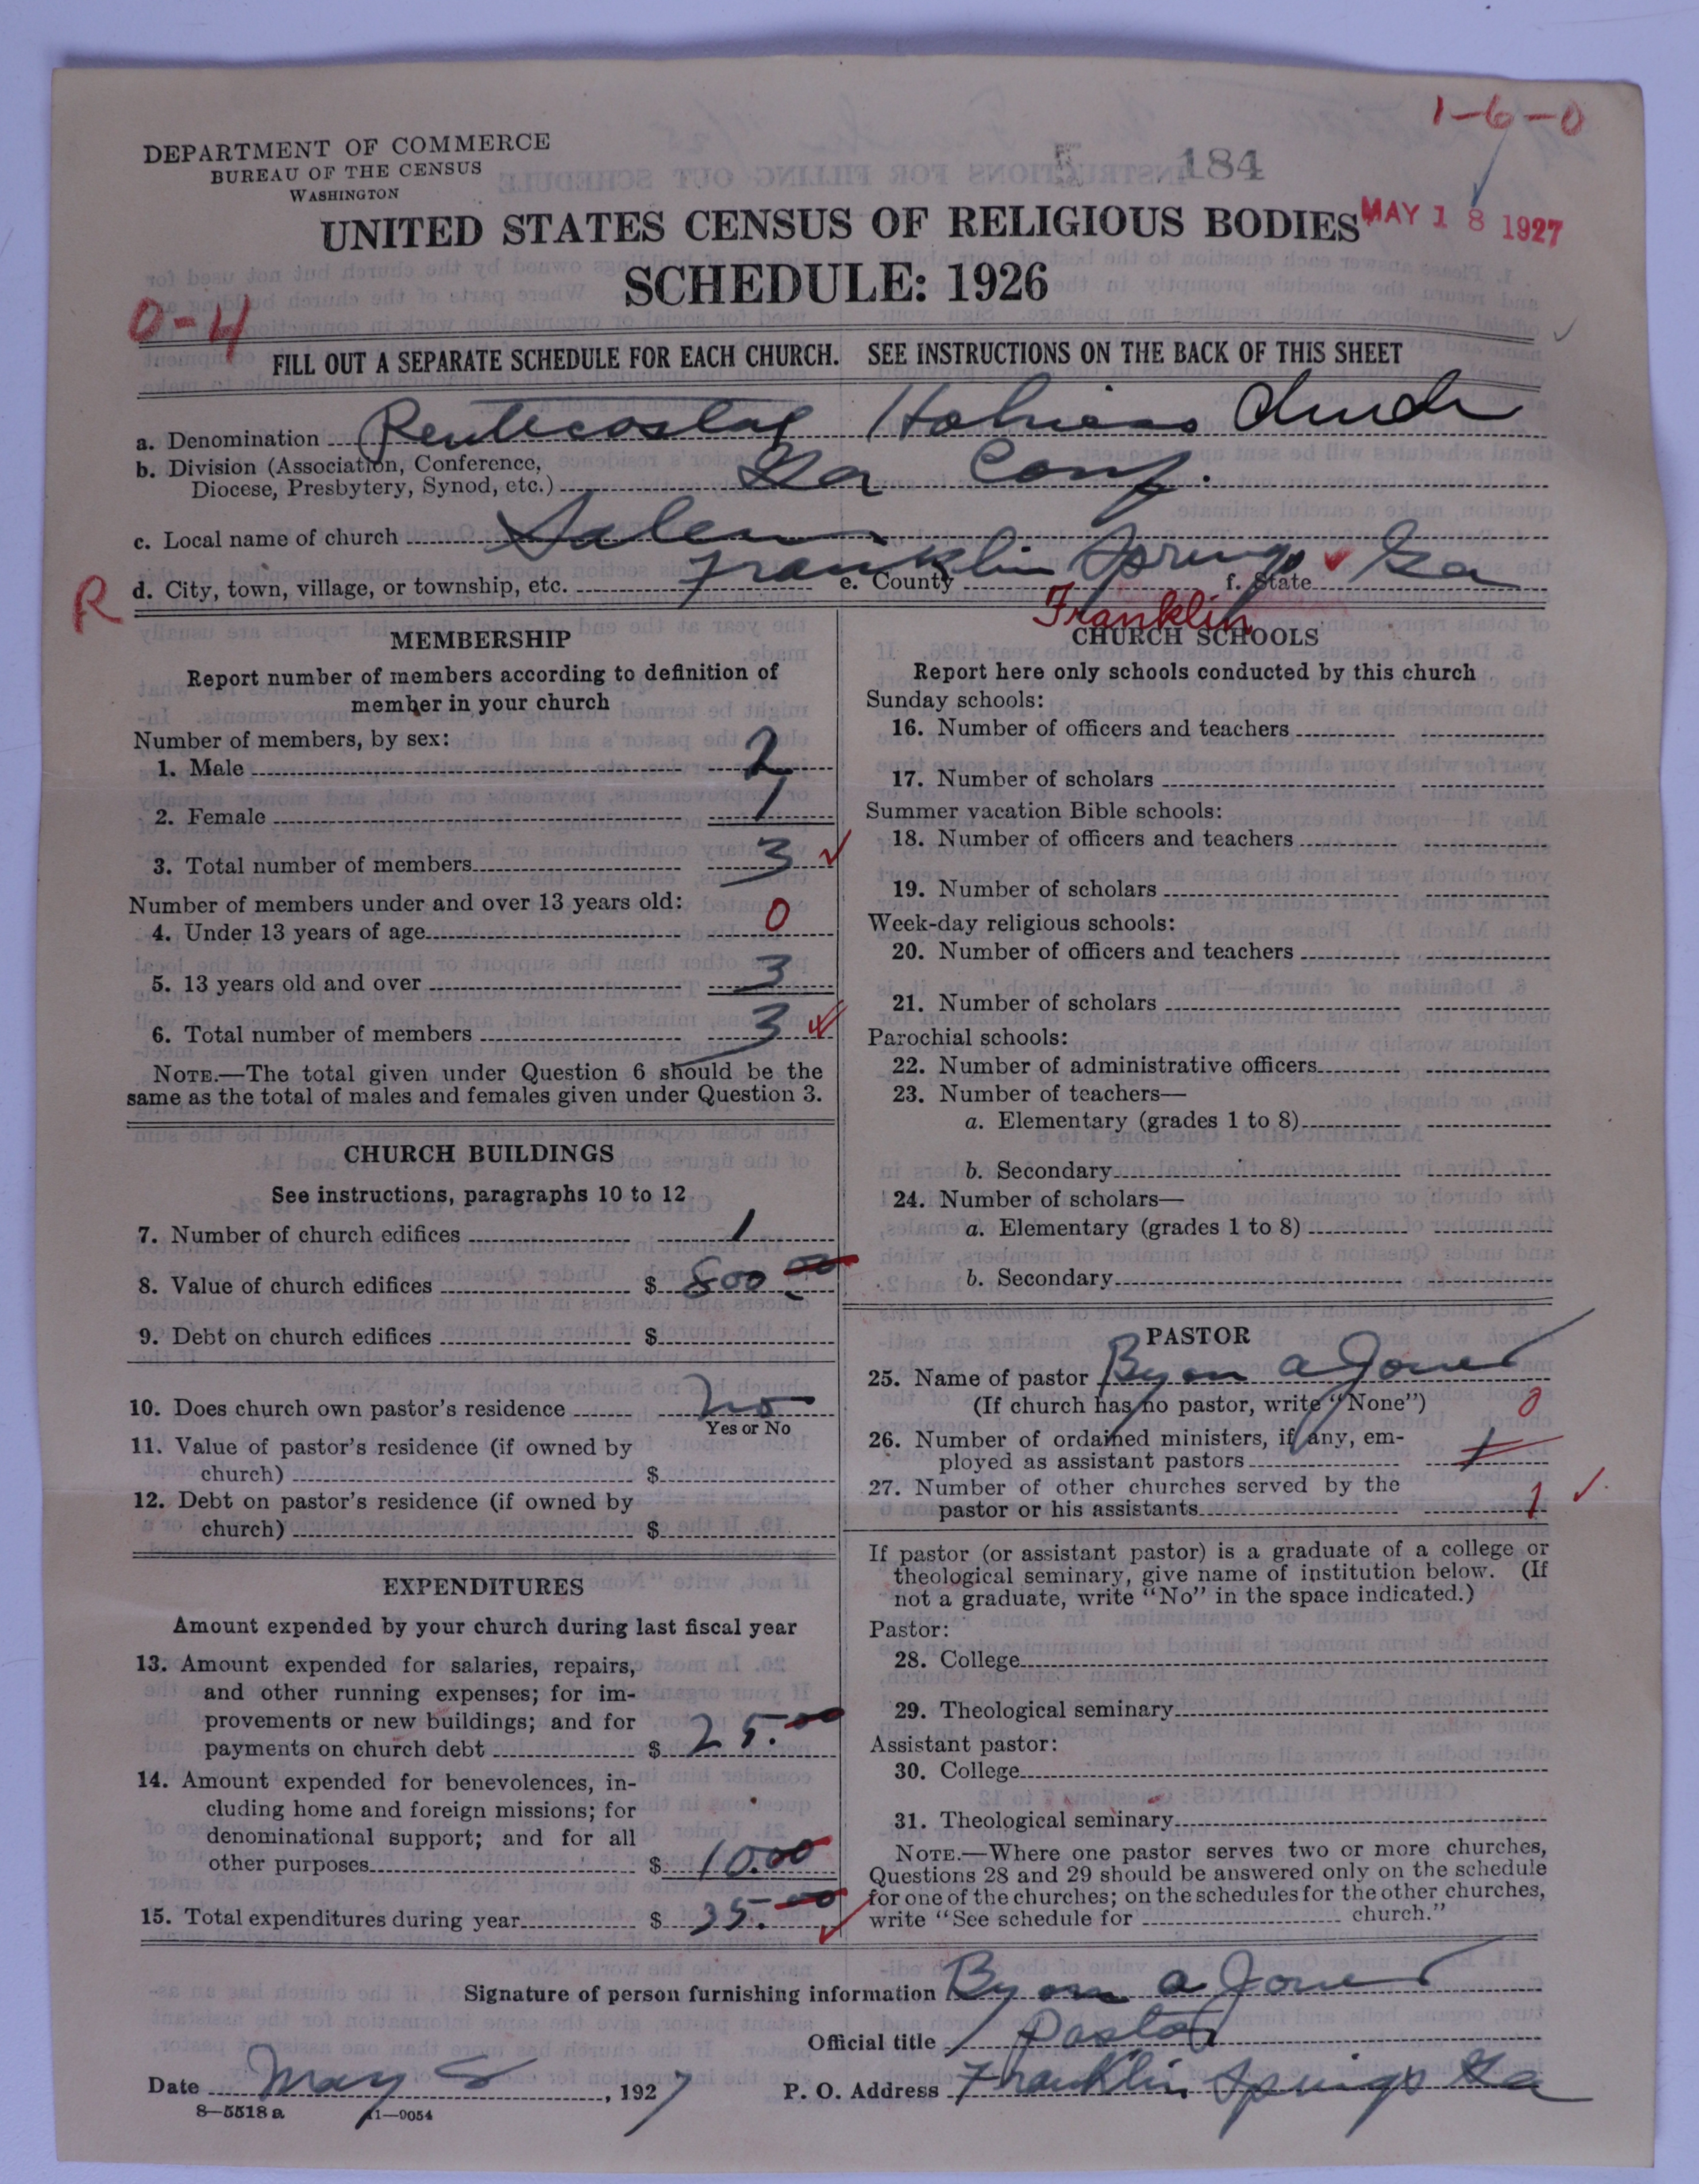 1-6-0
DEPARTMENT OF COMMERCE
BUREAU OF THE CENSUS
WASHINGTON
184
UNITED STATES CENSUS OF RELIGIOUS BODIES
MAY 18 1927
SCHEDULE: 1926
0-4
FILL OUT A SEPARATE SCHEDULE FOR EACH CHURCH. SEE INSTRUCTIONS ON THE BACK OF THIS SHEET
a. Denomination Pentecostal Holiness Church
b. Division (Association, Conference,
Diocese, Presbytery, Synod, etc.) Ga Conf.
c. Local name of church Salem
R d. City, town, village, or township, etc. Franklin Springs e. County f. State Ga
Franklin
MEMBERSHIP
Report number of members according to definition of
member in your church
Number of members, by sex:
1. Male 2
2. Female 1
3. Total number of members 3
Number of members under and over 13 years old:
4. Under 13 years of age 0
5. 13 years old and over 3
6. Total number of members 3
NOTE.—The total given under Question 6 should be the
same as the total of males and females given under Question 3.
CHURCH BUILDINGS
See instructions, paragraphs 10 to 12
7. Number of church edifices 1
8. Value of church edifices $ 800 00
9. Debt on church edifices $
10. Does church own pastor's residence no
Yes or No
11. Value of pastor's residence (if owned by
church) $
12. Debt on pastor's residence (if owned by
church) $
EXPENDITURES
Amount expended by your church during last fiscal year
13. Amount expended for salaries, repairs,
and other running expenses; for im-
provements or new buildings; and for
payments on church debt $ 25.00
14. Amount expended for benevolences, in-
cluding home and foreign missions; for
denominational support; and for all
other purposes $ 10.00
15. Total expenditures during year $ 35.00
CHURCH SCHOOLS
Report here only schools conducted by this church
Sunday schools:
16. Number of officers and teachers
17. Number of scholars
Summer vacation Bible schools:
18. Number of officers and teachers
19. Number of scholars
Week-day religious schools:
20. Number of officers and teachers
21. Number of scholars
Parochial schools:
22. Number of administrative officers
23. Number of teachers—
a. Elementary (grades 1 to 8)
b. Secondary
24. Number of scholars—
a. Elementary (grades 1 to 8)
b. Secondary
PASTOR
25. Name of pastor Byon a Jones
(If church has no pastor, write "None")
0
26. Number of ordained ministers, if any, em-
ployed as assistant pastors 1
27. Number of other churches served by the
pastor or his assistants 1
If pastor (or assistant pastor) is a graduate of a college or
theological seminary, give name of institution below. (If
not a graduate, write "No" in the space indicated.)
Pastor:
28. College
29. Theological seminary
Assistant pastor:
30. College
31. Theological seminary
NOTE.—Where one pastor serves two or more churches,
Questions 28 and 29 should be answered only on the schedule
for one of the churches; on the schedules for the other churches,
write "See schedule for church."
Signature of person furnishing information Byon a Jones
Official title Pastor
Date May 5, 1927 P. O. Address Franklin Springs Ga
8—5518 a 11—9054